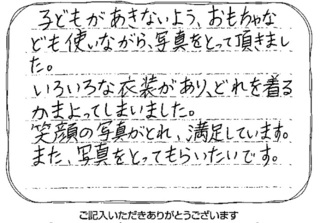 子どもがあきないよう、おもちゃな
ども使いながら、写真をとって頂きまし
た。
いろいろな衣装があり、どれを着る
かまよってしまいました。
笑顔の写真がとれ、満足しています。
また、写真をとってもらいたいです。
ご記入いただきありがとうございます